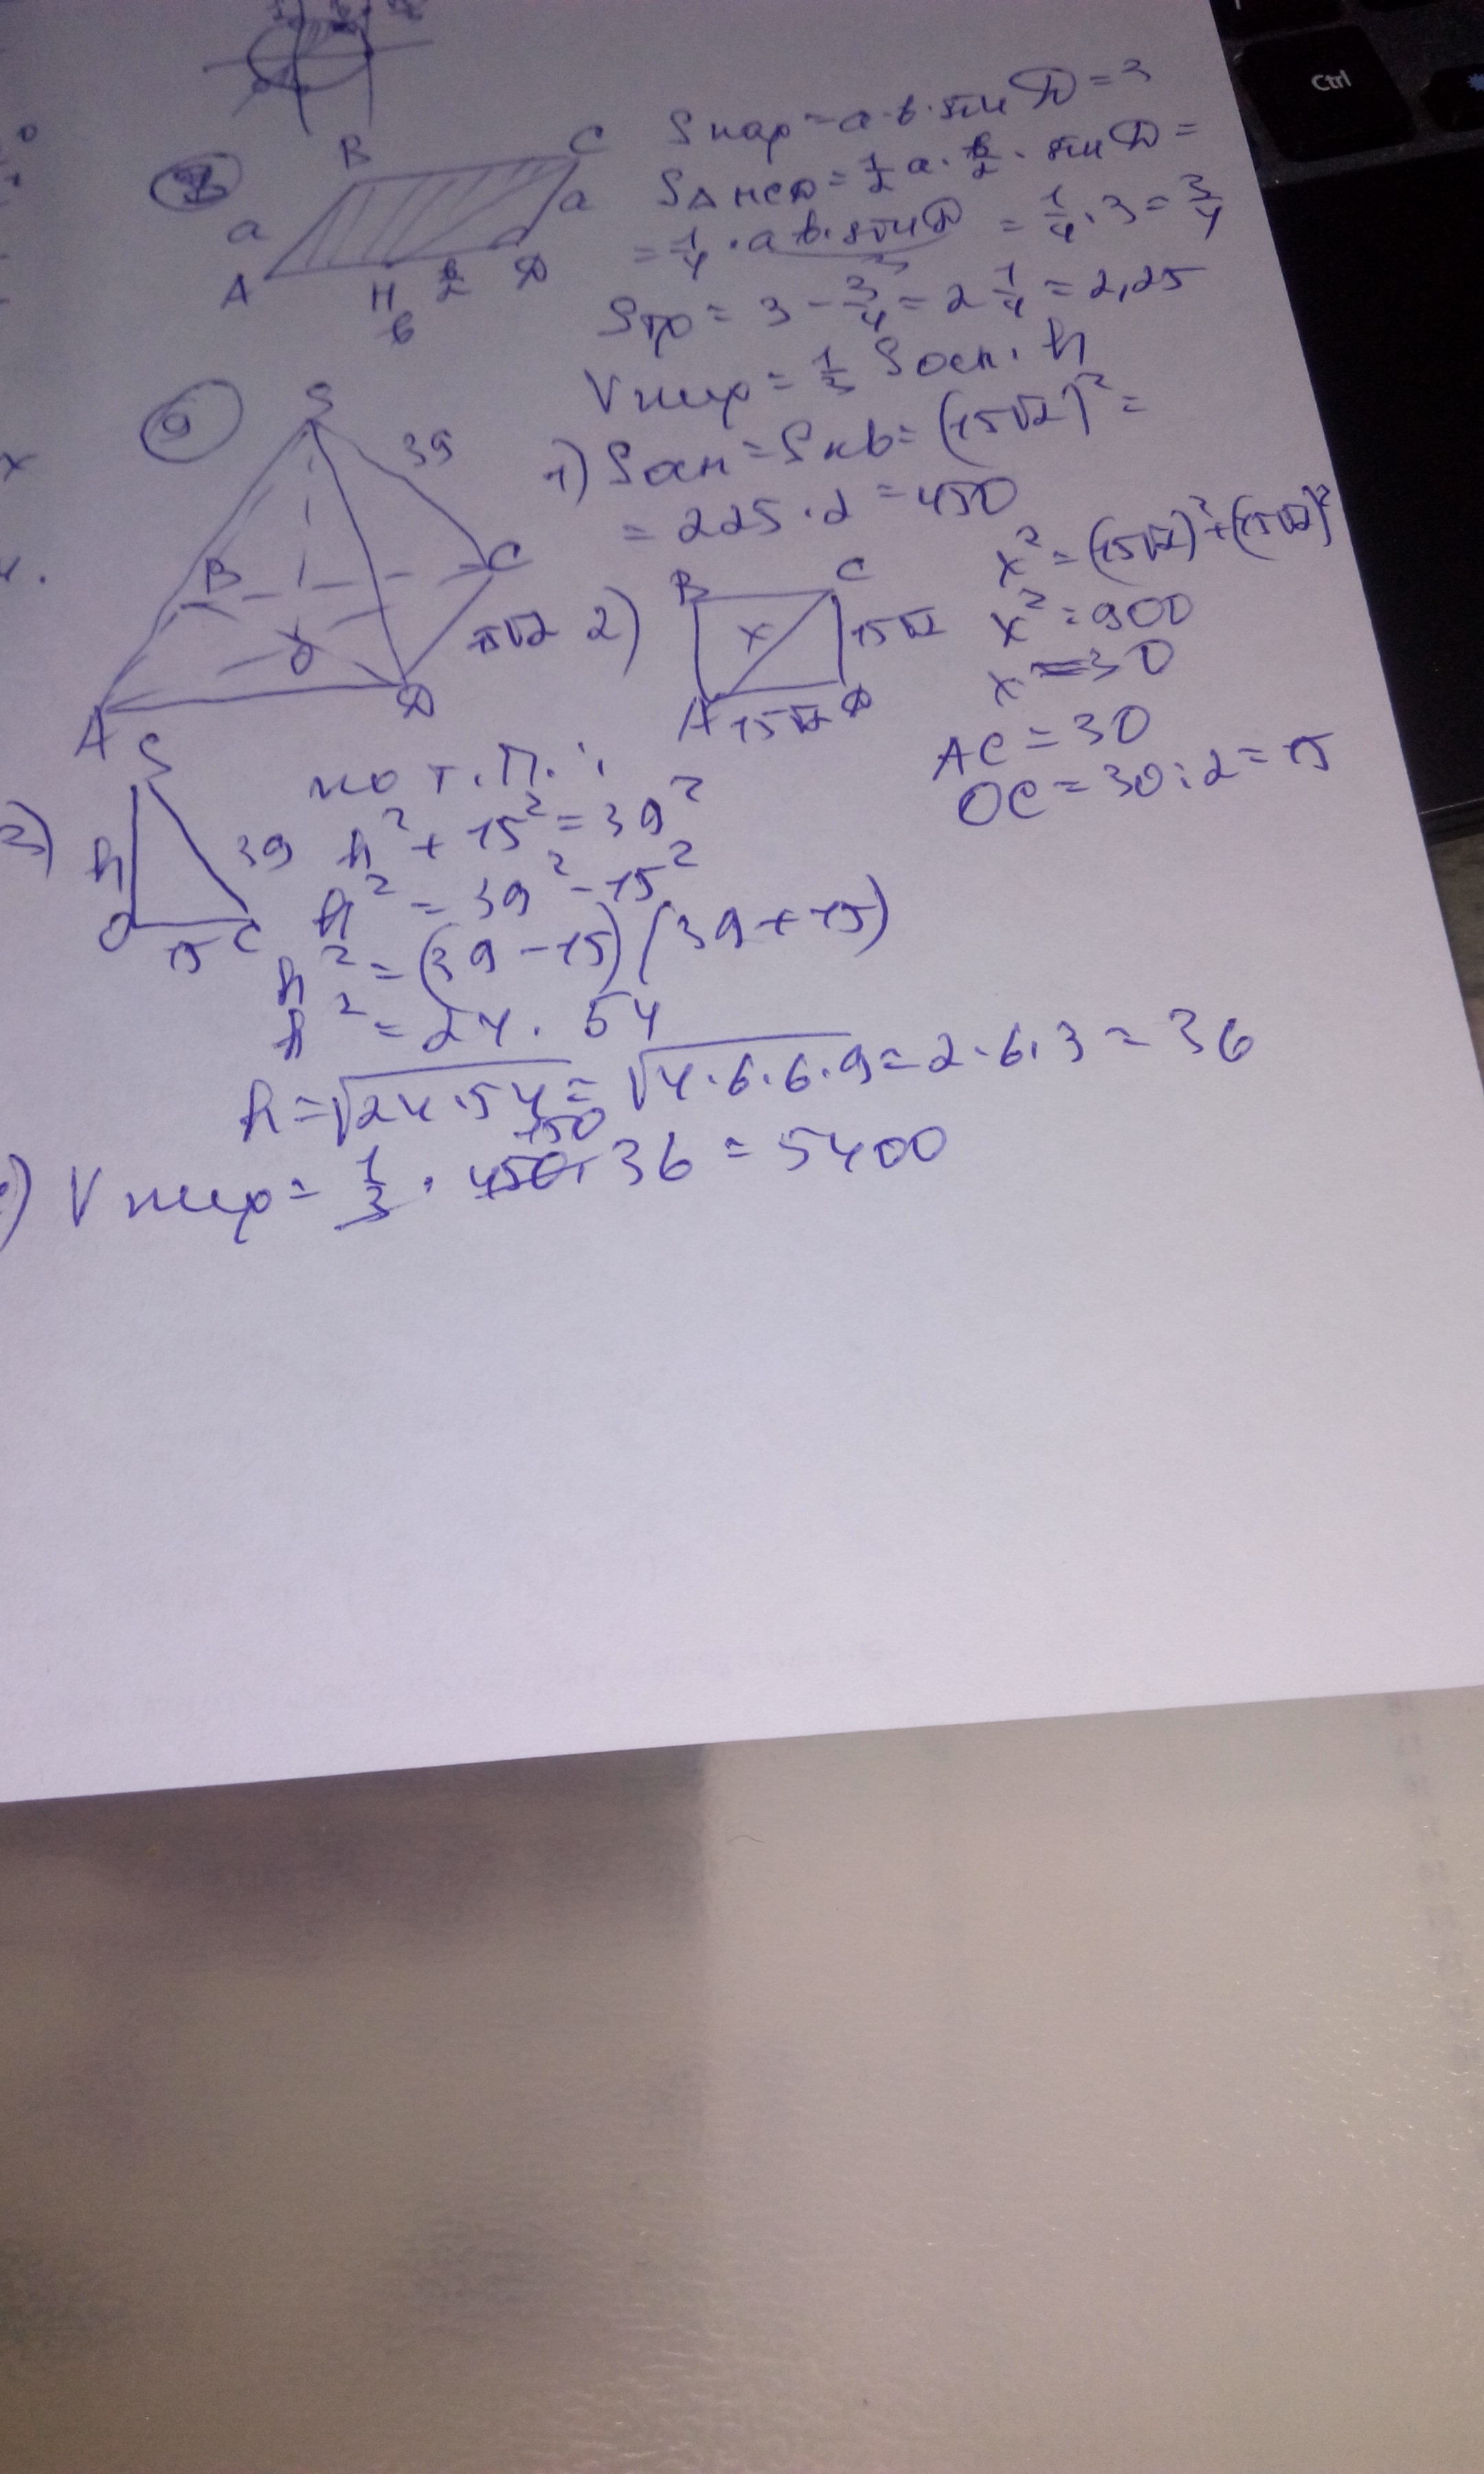 Ctrl
B
C
a
a
A
H
b/2
D
b
Sпар = a·b·sin D = 3
S△HCD = 1/2 a · b/2 · sin D =
= 1/4 · a b · sin D = 1/4 · 3 = 3/4
3
Sтр = 3 - 3/4 = 2 1/4 = 2,25
9
S
39
B
C
15√2
O
A
D
Vпир = 1/3 Sосн · h
1) Sосн = Sкв = (15√2)² =
= 225 · 2 = 450
2)
B
C
x
15√2
A
15√2
D
x² = (15√2)² + (15√2)²
x² = 900
x = 30
AC = 30
OC = 30 : 2 = 15
3)
S
h
39
O
15
C
по т. П. :
h² + 15² = 39²
h² = 39² - 15²
h² = (39 - 15)(39 + 15)
h² = 24 · 54
h = √24·54 = √4·6·6·9 = 2·6·3 = 36
150
) Vпир = 1/3 · 450 · 36 = 5400